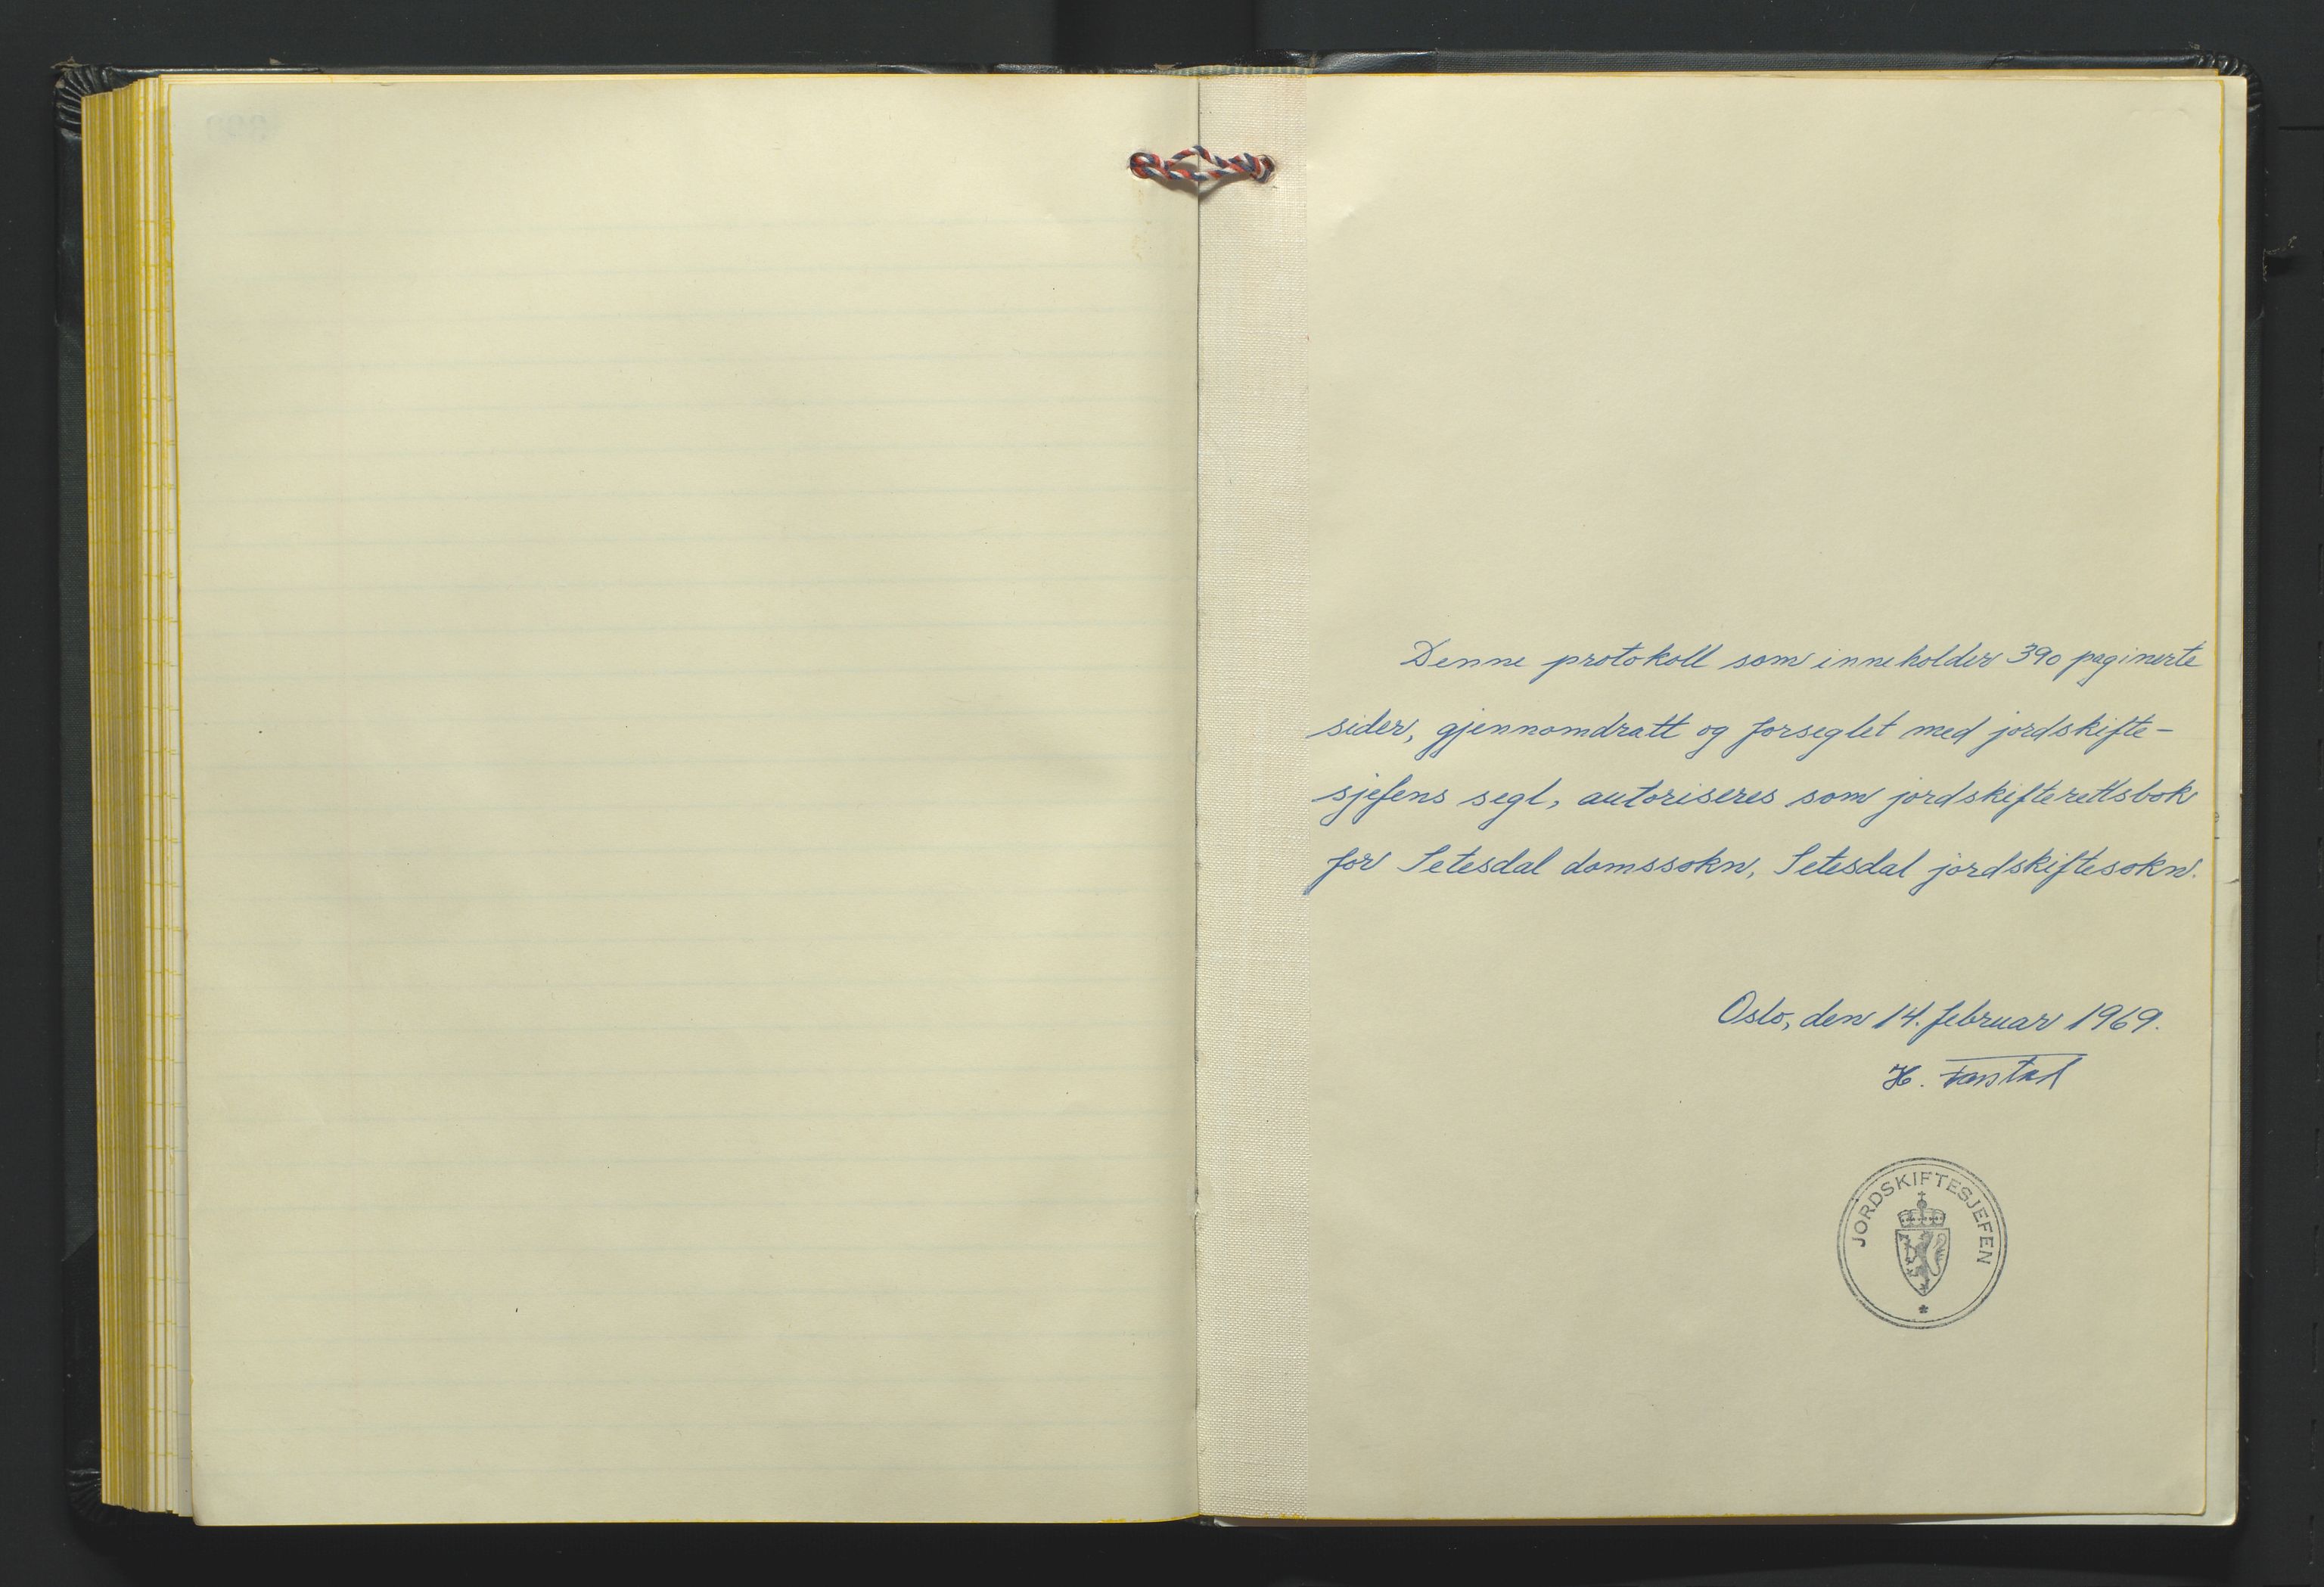 Denne protokoll som inneholder 390 paginerte
sider, gjennomdratt og forseglet med jordskifte-
sjefens segl, autoriseres som jordskifterettsbok
for Setesdal domssokn, Setesdal jordskiftesokn.
Oslo, den 14. februar 1969.
H.
JORDSKIFTESJEFEN